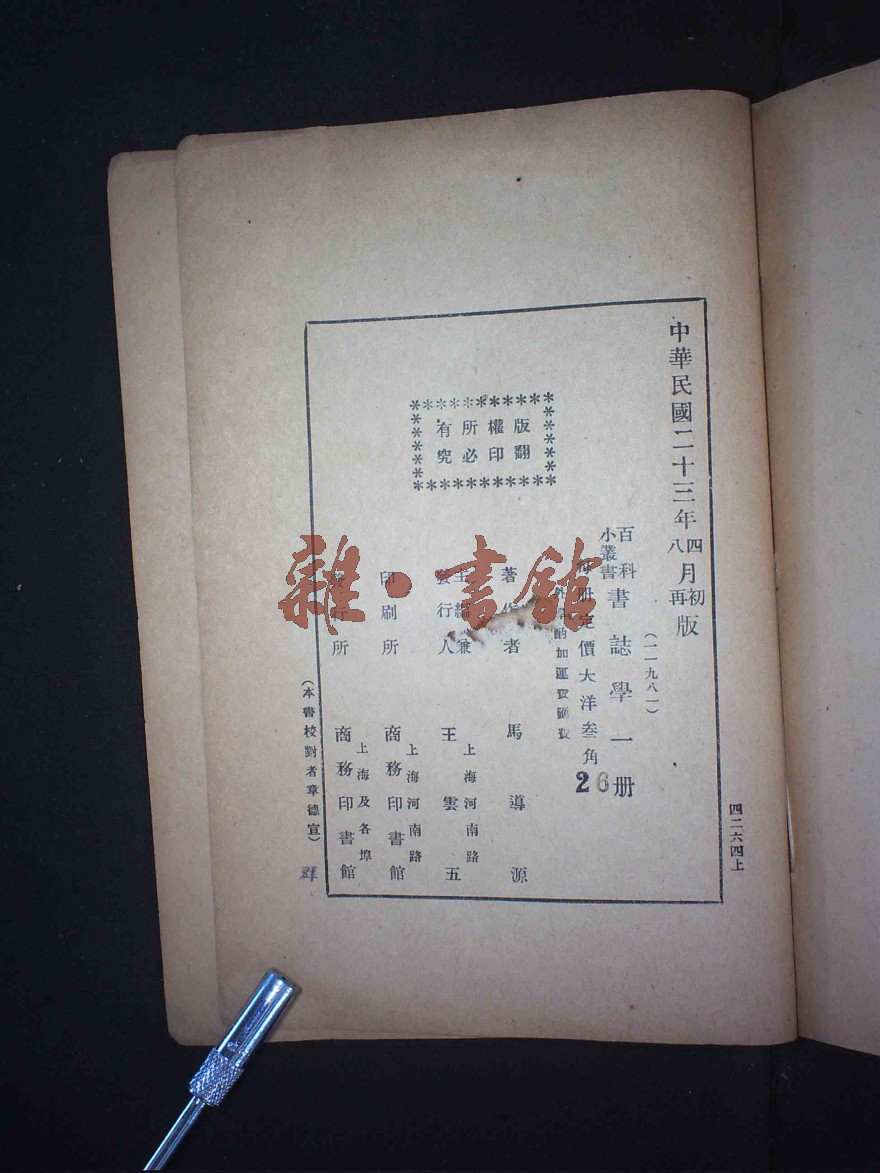 中華民國二十三年四月初版
八月再版
(一一九八一)
百科小叢書 書誌學一册
每册定價大洋叁角
26
外埠酌加運費匯費
著作者 馬導源
主編兼發行人 王雲五
上海河南路
印刷所 商務印書館
上海河南路
發行所 商務印書館
上海及各埠
版權所有
翻印必究
(本書校對者章德宣)
四二六四上
雜·書館